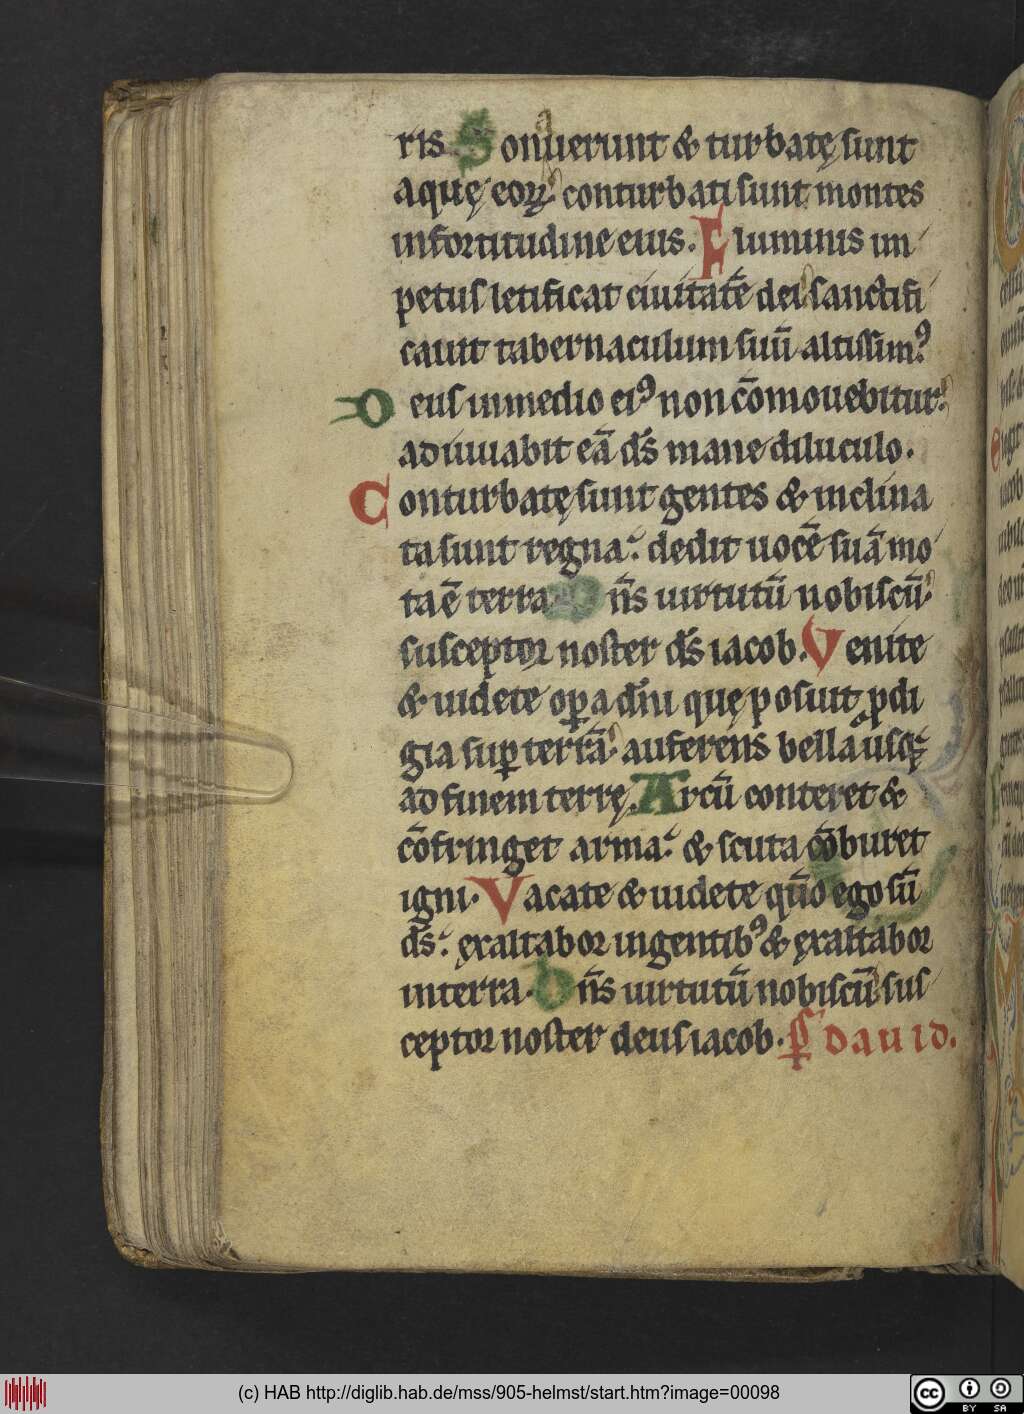 ris Sonuerunt & turbatę sunt
aquę eoꝝ conturbati sunt montes
infortitudine eius. Fluminis im
petus letificat ciuitatē dei sanctifi
cauit tabernaculum suū altissimꝰ
Deus inmedio eiꝰ non cōmouebitur:
adiuuabit eā d̄s mane diluculo.
Conturbatę sunt gentes & inclina
ta sunt regna: dedit uocē suā mo
ta ē terra Dn̄s uirtutū nobiscū:
susceptor noster d̄s iacob. Venite
& uidete oꝑa dn̄i quę posuit ꝓdi
gia suꝑ terrā: auferens bella usqꝫ
ad finem terrę. Arcū conteret &
cōfringet arma: & scuta cōburet
igni. Vacate & uidete qn̄o ego sū
d̄s: ęxaltabor ingentibꝰ & ęxaltabor
interra. Dn̄s uirtutū nobiscū sus
ceptor noster deus iacob. P̄S dauid.
(c) HAB http://diglib.hab.de/mss/905-helmst/start.htm?image=00098
cc BY SA